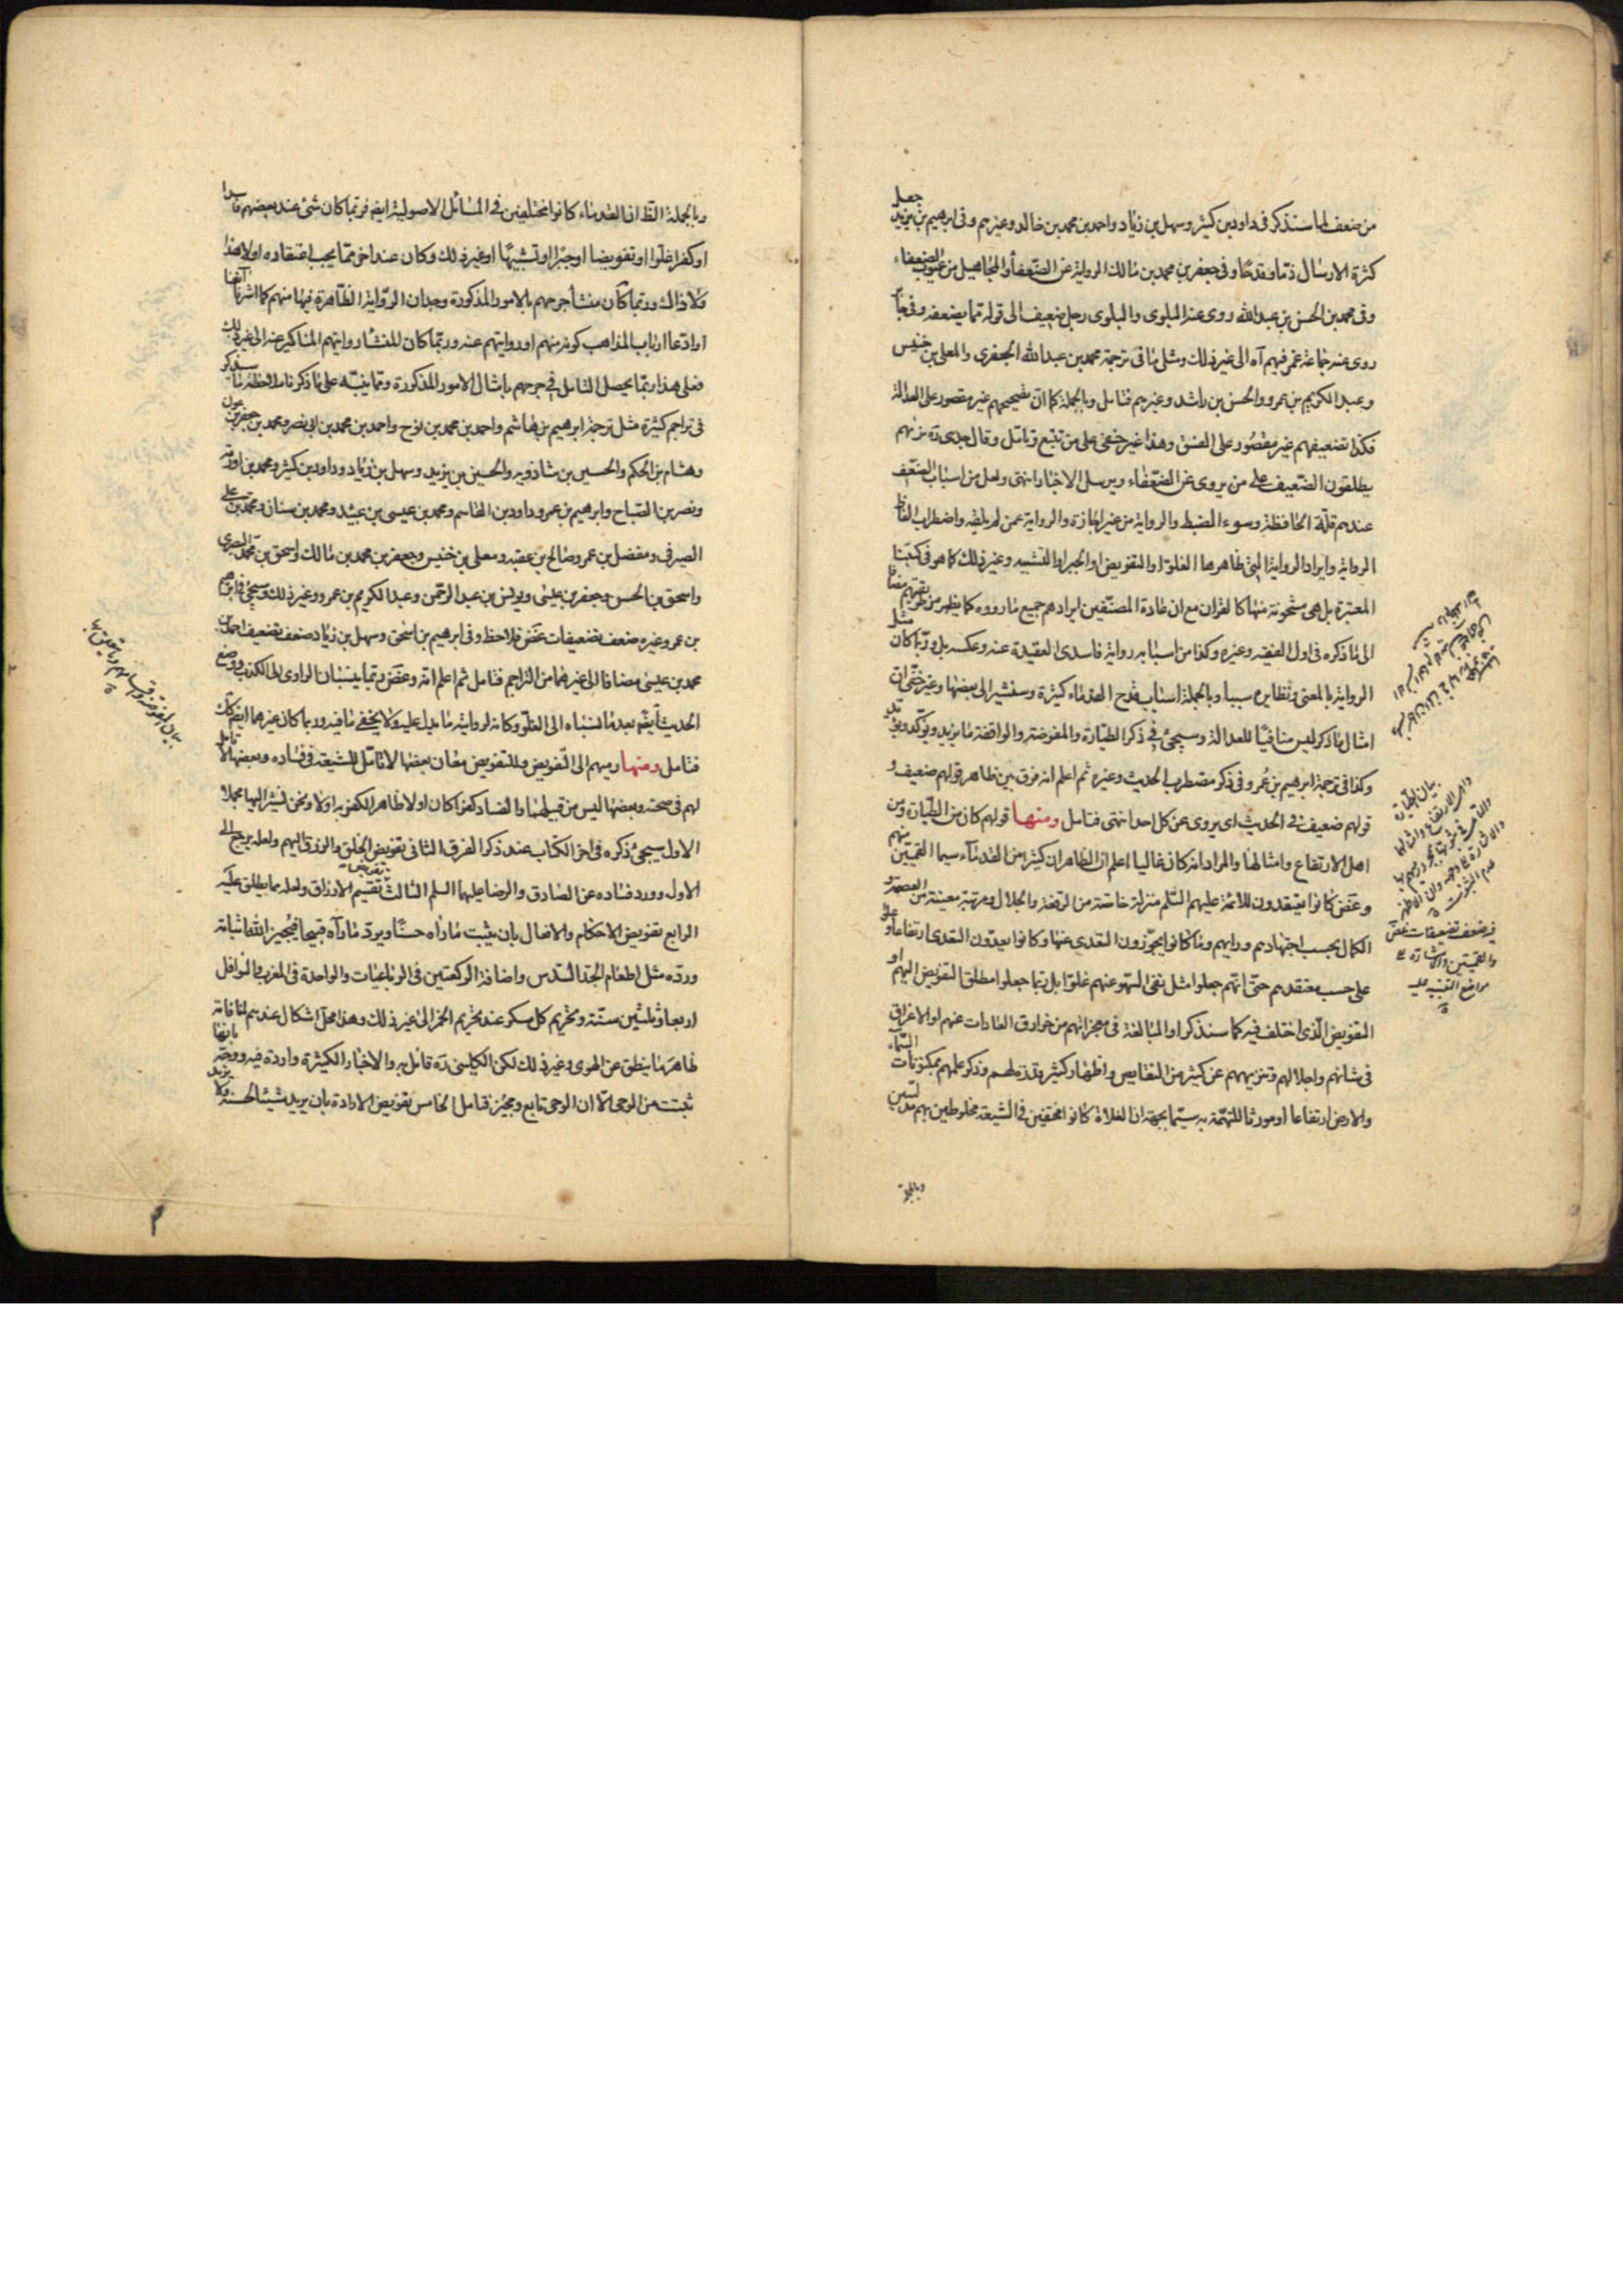 من ضعف لما سنذكر فى داود بن كثير وسهل بن زياد واحمد بن محمد بن خالد وغيرهم وفى ابرهيم بن يزيد جعل
كثرة الارسال ذما وقدحا وفى جعفر بن محمد بن مالك الرواية عن الضعفاء والمجاهيل من عيوب الضعفاء
وفى محمد بن الحسن بن عبد الله روى عنه البلوى والبلوى رجل ضعيف الى قوله مما يضعفه وفى جابر
روى عنه جماعة غمز فيهم آه الى غير ذلك ومثل ما فى ترجمة محمد بن عبد الله الجعفرى والمعلى بن خنيس
وعبد الكريم بن عمرو والحسن بن راشد وغيرهم فتامل وبالجملة كما ان تصحيحهم غير مقصور على العدالة
فكذا تضعيفهم غير مقصور على الفسق وهذا غير خفى على من تتبع وتامل وقال جدى ره نريهم
يطلقون الضعيف على من يروى عن الضعفاء ويرسل الاخبار انتهى ولعل من اسباب الضعف
عندهم قلة الحافظة وسوء الضبط والرواية من غير اجازة والرواية عمن لم يلقه واضطراب الفاظ
الرواية وايراد الرواية التى ظاهرها الغلو او التفويض او الجبر او التشبيه وغير ذلك كما هو فى كتبنا
المعتبرة بل هى مشحونة منها كالقران مع ان عادة المصنفين ايرادهم جميع ما رووه كما يظهر من طريقتهم مضافا
الى ما ذكره فى اول الفقيه وغيره وكذا من اسبابه رواية فاسدى العقيدة عنه وعكسه بل وربما كان مثل
الرواية بالمعنى ونظايره سببا وبالجملة اسباب قدح القدماء كثيرة وسنشير الى بعضها وغير خفى ان
امثال ما ذكر ليس منافيا للعدالة وسيجئ فى ذكر الطيارة والمفوضة والواقفة ما يزيد ويؤكد ويؤيد
وكذا فى ترجمة ابرهيم بن عمر وفى ذكر مضطرب الحديث وغيره ثم اعلم انه فرق بين ظاهر قولهم ضعيف و
قولهم ضعيف فى الحديث اى يروى عن كل احد انتهى فتامل ومنها قولهم كان من الطيارة ومن
اهل الارتفاع وامثالها والمراد انه كان غاليا اعلم ان الظاهر ان كثيرا من القدماء سيما القميين منهم
وغض كانوا يعتقدون للائمة عليهم السلم منزلة خاصة من الرفعة والجلال ومرتبة معينة من العصمة و
الكمال بحسب اجتهادهم ورايهم وما كانوا يجوزون التعدى عنها وكانوا يعدون التعدى ارتفاعا وغلوا
على حسب معتقدهم حتى انهم جعلوا مثل نفى السهو عنهم غلوا بل ربما جعلوا مطلق التفويض اليهم او
التفويض الذى اختلف فيه كما سنذكر او المبالغة فى معجزاتهم من خوارق العادات عنهم او الاغراق
فى شانهم واجلالهم وتنزيههم عن كثير من النقايص واظهار كثير قدرة لهم وذكر علمهم بمكنونات السماء
والارض ارتفاعا او مورثا للتهمة به سيما بجهة ان الغلاة كانوا مختفين فى الشيعة مخلوطين بهم مدلسين
وبالجملة
بيان الطيارة
واهل الارتفاع وامثالها
فى ضعف تضعيفات غض
والقميين والاشارة الى
مواضع التنبيه عليه
وبالجملة الظ ان القدماء كانوا مختلفين فى المسائل الاصولية ايضا فربما كان شئ عند بعضهم فاسدا
او كفرا غلوا او تفويضا او جبرا او تشبيها او غير ذلك وكان عند اخر مما يجب اعتقاده او لا هذا
ولا ذاك وربما كان منشأ جرحهم بالامور المذكورة وجدان الرواية الظاهرة فيها منهم كما اشرنا آنفا
او ادعا ارباب المذاهب كونه منهم او روايتهم عنه وربما كان المنشأ روايتهم المناكير عنه الى غير ذلك
فعلى هذا ربما يحصل التامل فى جرحهم بامثال الامور المذكورة ومما ينبه على ما ذكر ملاحظة ما سيذكر
فى تراجم كثيرة مثل ترجمة ابرهيم بن هاشم واحمد بن محمد بن نوح واحمد بن محمد بن ابى نصر ومحمد بن جعفر بن عون
وهشام بن الحكم والحسين بن شاذويه والحسين بن يزيد وسهل بن زياد وداود بن كثير ومحمد بن اورمة
ونصر بن الصباح وابرهيم بن عمر وداود بن القاسم ومحمد بن عيسى بن عبيد ومحمد بن سنان ومحمد بن على
الصيرفى ومفضل بن عمر وصالح بن عقبة ومعلى بن خنيس وجعفر بن محمد بن مالك واسحق بن محمد البصرى
واسحق بن الحسن وجعفر بن عيسى ويونس بن عبد الرحمن وعبد الكريم بن عمرو وغير ذلك وسيجئ فى ابرهيم
بن عمر وغيره ضعف تضعيفات غض فلاحظ وفى ابرهيم بن اسحق وسهل بن زياد ضعف تضعيف احمد بن
محمد بن عيسى مضافا الى غيرهما من التراجم فتامل ثم اعلم انه وغض ربما ينسبان الراوى الى الكذب ووضع
الحديث ايضا بعد ما نسباه الى الغلو وكانه لروايته ما يدل عليه ولا يخفى ما فيه وربما كان غيرهما ايضا كذلك
فتامل ومنها رميهم الى التفويض وللتفويض معان بعضها لا تامل للشيعة فى فساده وبعضها لا تامل
لهم فى صحته وبعضها ليس من قبيلهما والفساد كفرا كان او لا ظاهر الكفرية اولا ونحن نشير اليها مجملا
الاول سيجئ ذكره فى اخر الكتاب عند ذكر الفرق الثانى تفويض الخلق والرزق اليهم ولعله يرجع الى
الاول وورد فساده عن الصادق والرضا عليهما السلم الثالث تفويض تقسيم الارزاق ولعله مما يطلق عليه
الرابع تفويض الاحكام والافعال بان يثبت ما رآه حسنا ويرد ما رآه قبيحا فيجيز الله اثباته
ورده مثل اطعام الجد السدس واضافة الركعتين فى الرباعيات والواحدة فى المغرب والنوافل
اربعا وثلثين سنة وتحريم كل مسكر عند تحريم الخمر الى غير ذلك وهذا محل اشكال عندهم لمنافاته
ظاهر ما ينطق عن الهوى وغير ذلك لكن الكلينى ره قائل به والاخبار الكثيرة واردة فيه ووجه بانها
ثبتت من الوحى الا ان الوحى تابع ومجيز فتامل الخامس تفويض الارادة بان يريد شيئا لحسنه ولا يريد